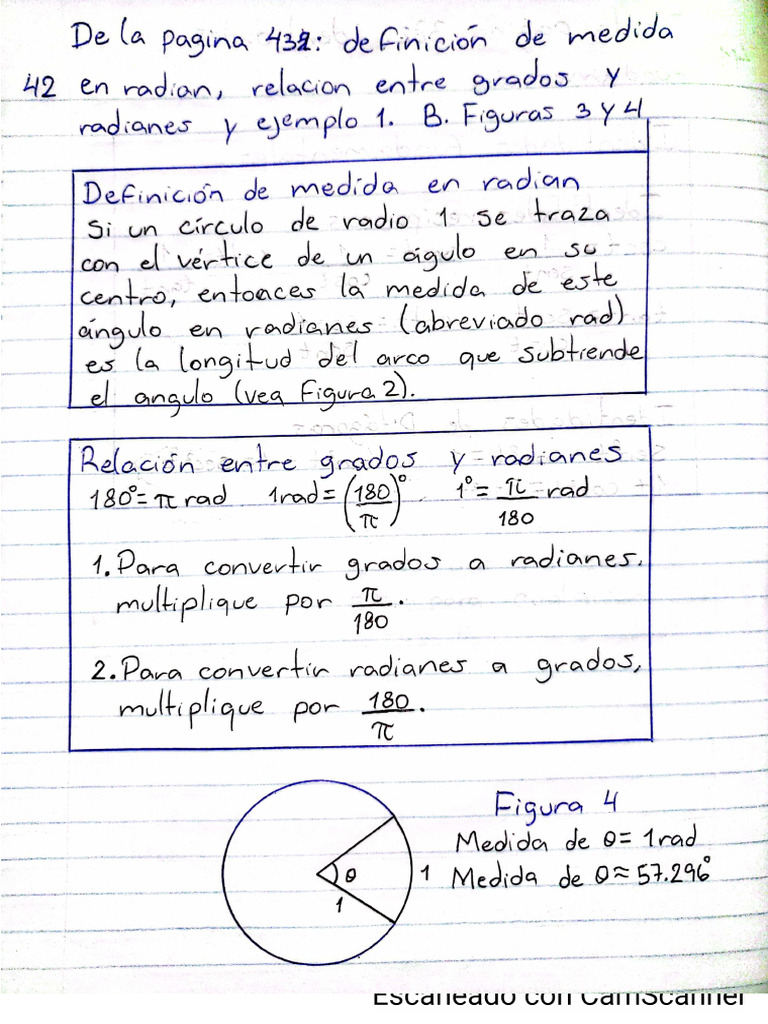 De la pagina 432: definición de medida
42 en radian, relacion entre grados y
radianes y ejemplo 1. B. Figuras 3 y 4
Definición de medida en radian
Si un círculo de radio 1 se traza
con el vértice de un águlo en su
centro, entonces la medida de este
ángulo en radianes (abreviado rad)
es la longitud del arco que subtiende
el angulo (vea Figura 2).
Relación entre grados y radianes
180°= π rad 1rad = (180/π)° 1° = π/180 rad
1. Para convertir grados a radianes.
multiplique por π/180.
2. Para convertir radianes a grados,
multiplique por 180/π.
Figura 4
Medida de θ= 1rad
θ 1 Medida de θ≈57.296°
1
Escaneado con CamScanner